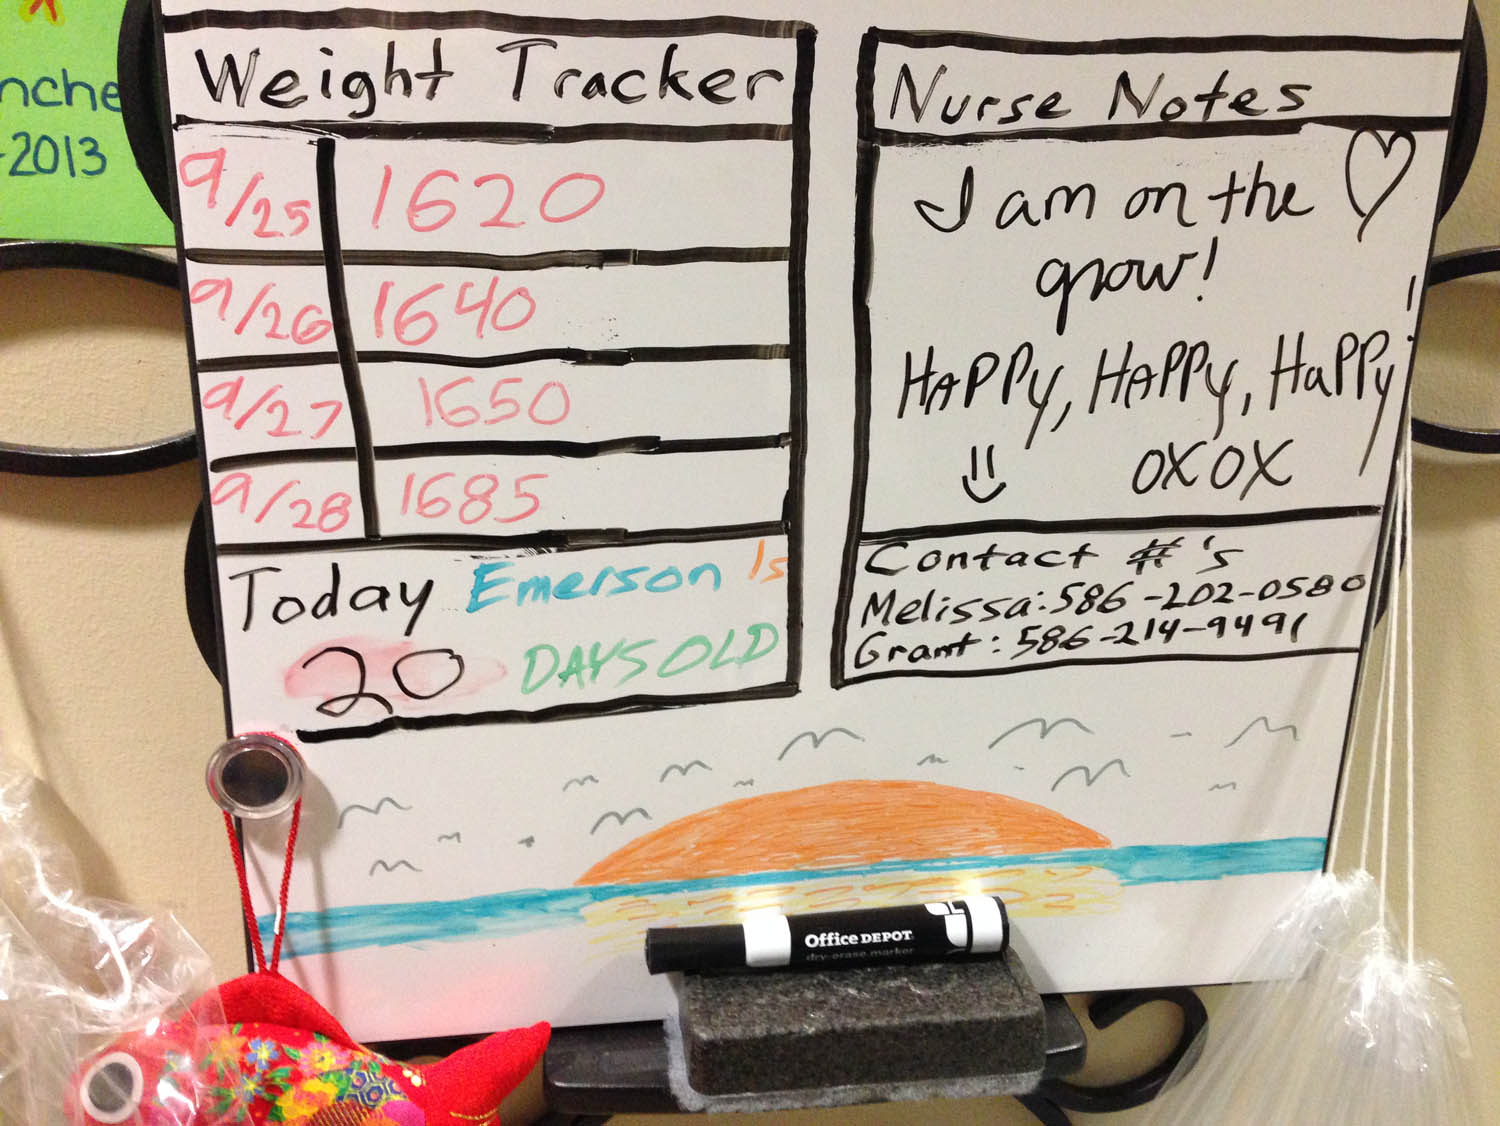 nche
-2013
Weight Tracker
9/25 1620
9/26 1640
9/27 1650
9/28 1685
Today Emerson Is
20 DAYS OLD
Nurse Notes
I am on the
grow!
HAPPy, HAPPy, HaPPy!
OXOX
Contact #'s
Melissa: 586-202-0580
Grant: 586-214-9491
Office DEPOT
dry-erase marker